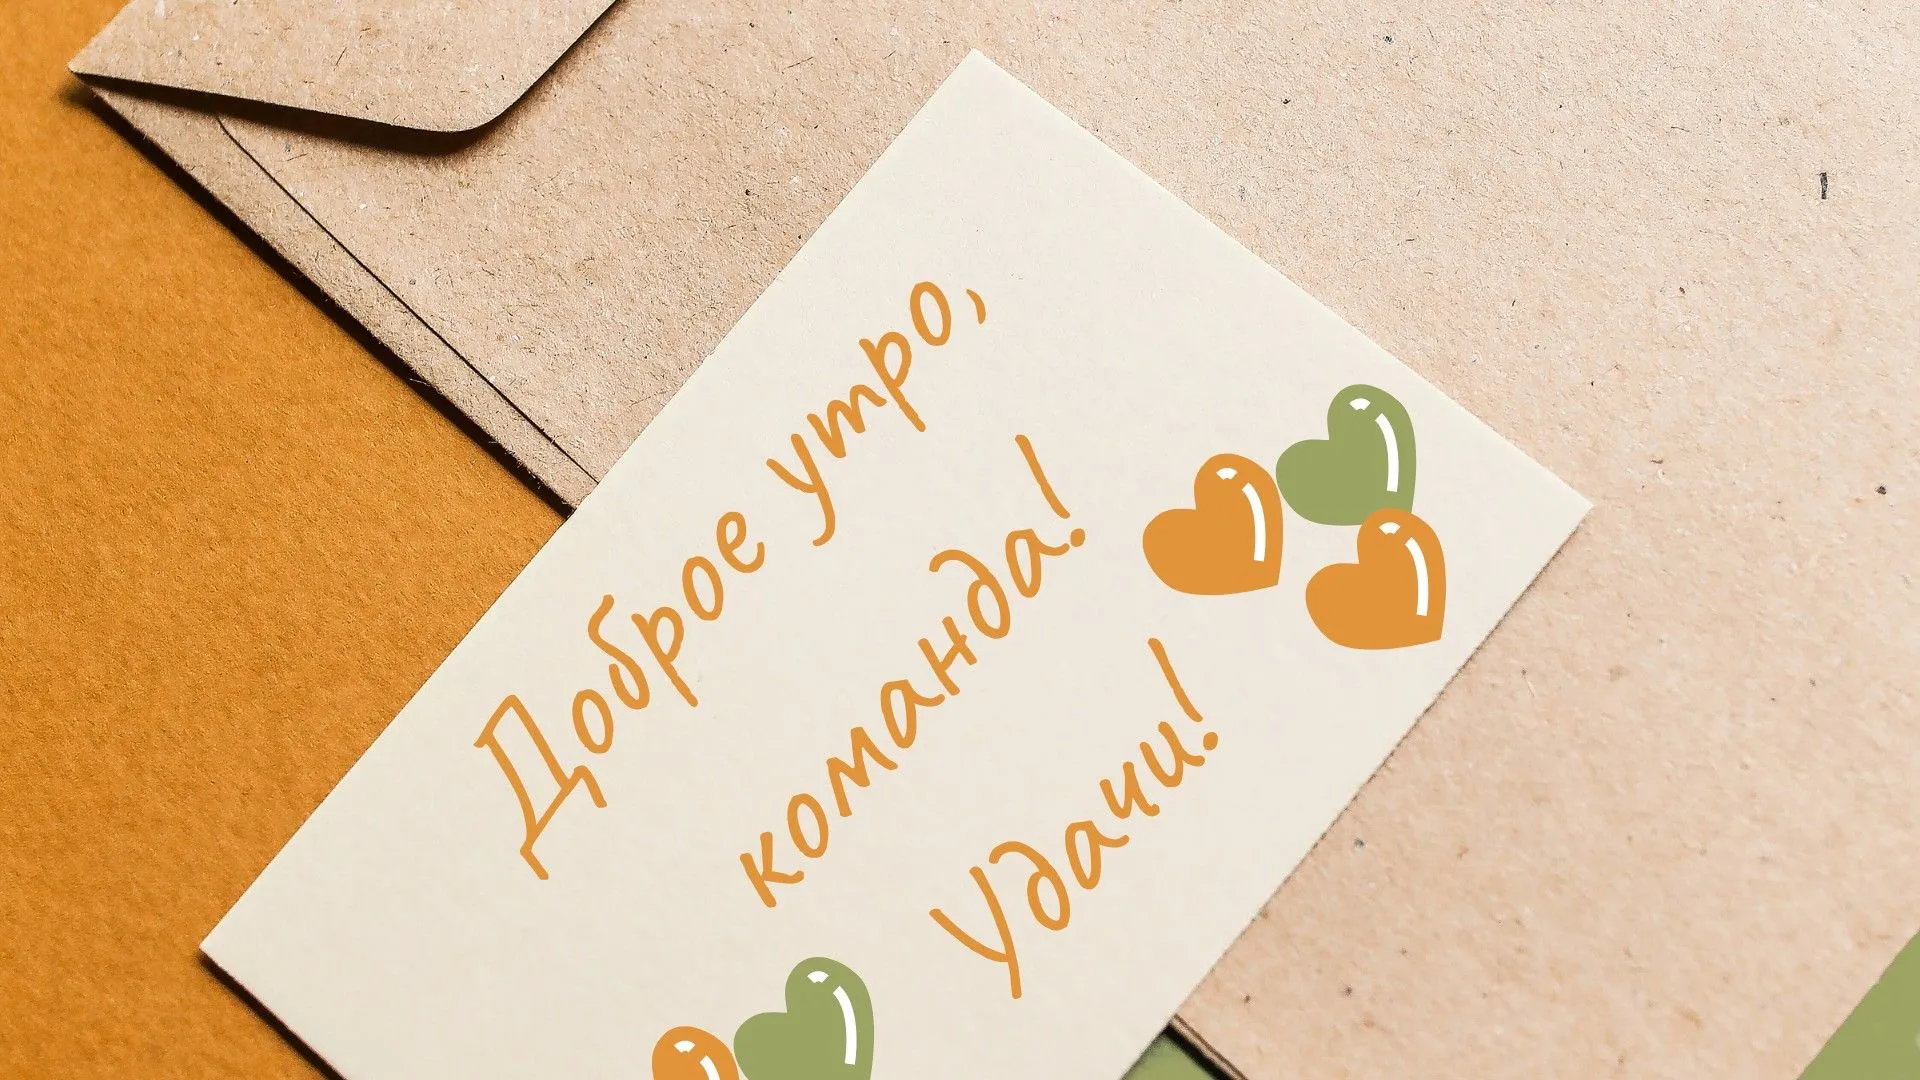 Доброе утро,
команда!
Удачи!